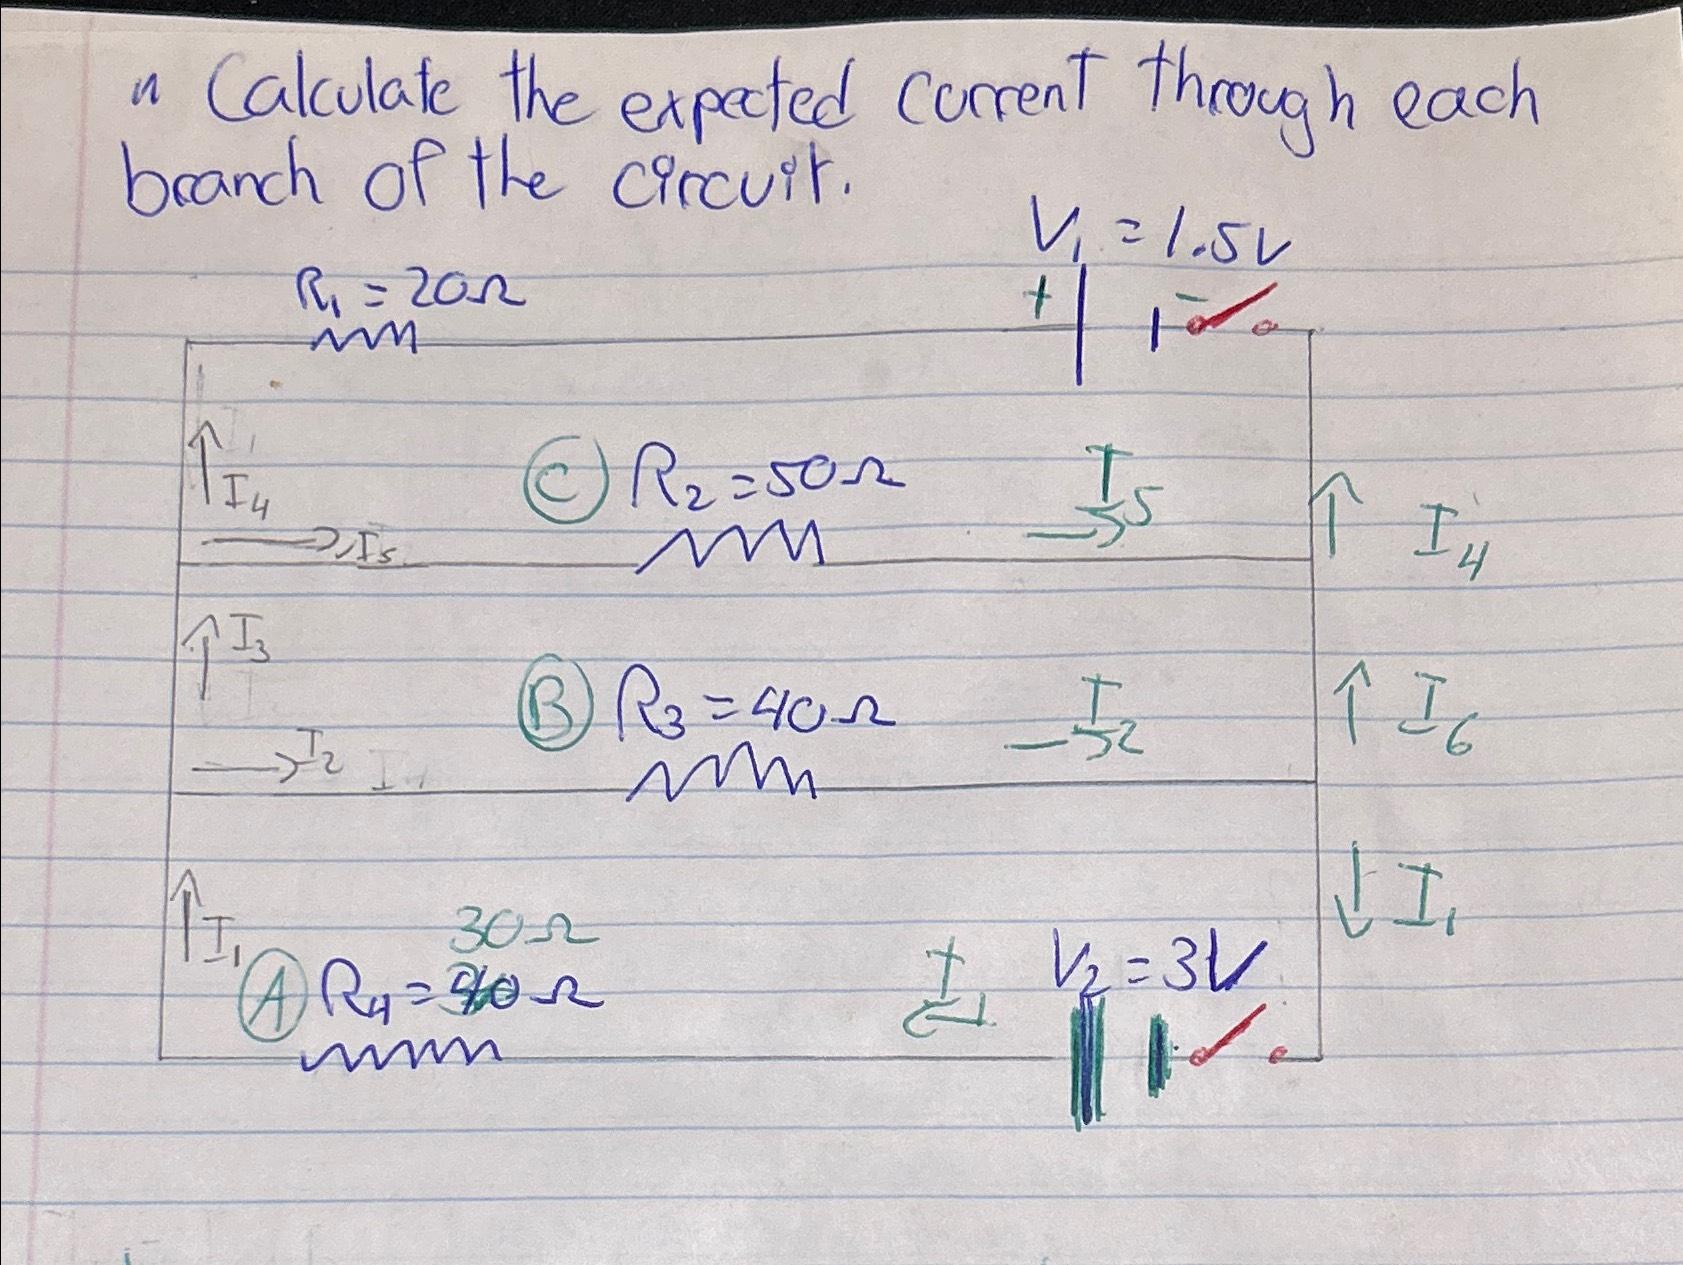 " Calculate the expected current through each
branch of the circuit.
V₁ = 1.5V
R₁ = 20Ω
+ -
I₄
C R₂ = 50Ω
I₅
I₄
I₅
I₃
B R₃ = 40Ω
I₂
I₆
I₂
I₁
I₁
30Ω
A R₄ = Ω
I₁
V₂ = 3V